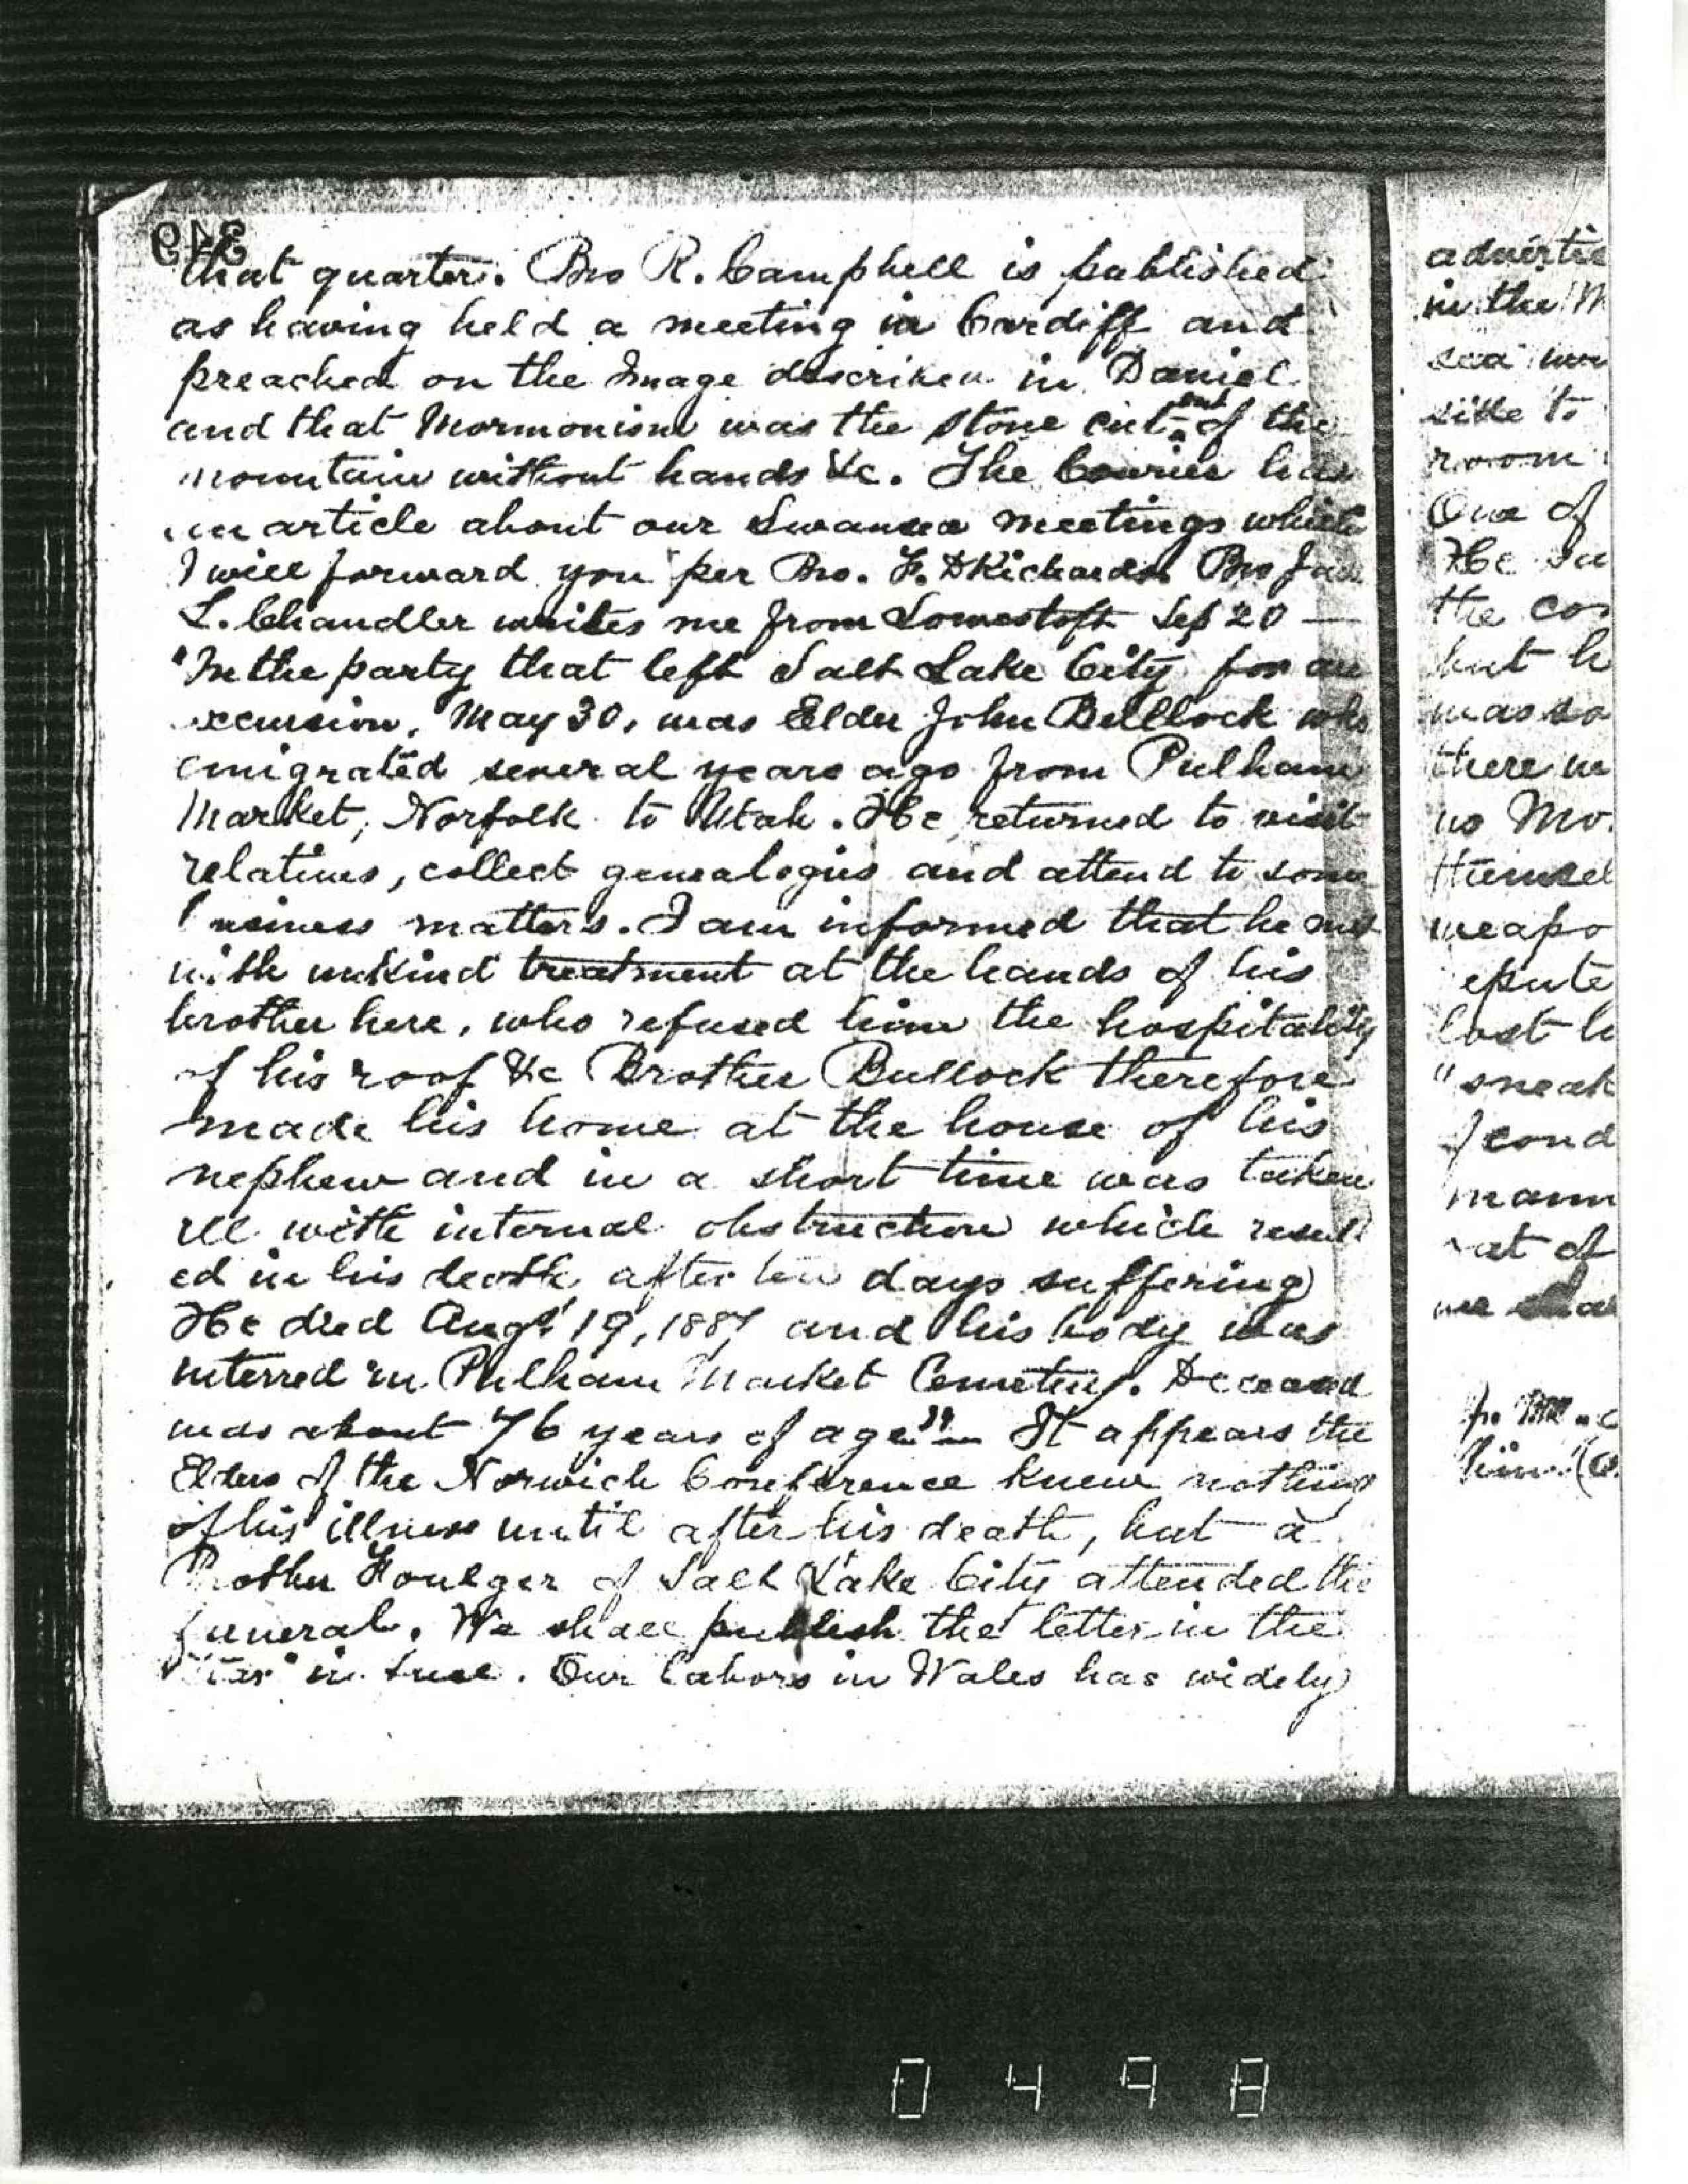 349
that quarter. Bro R. Campbell is published
as having held a meeting in Cardiff and
preached on the Image described in Daniel
and that Mormonism was the stone cut out of the
mountain without hands &c. The Courier has
an article about our Swansea meetings which
I will forward you per Bro. F. D Richards. Bro Jas
L. Chandler writes me from Lowestoft Sep 20 —
"In the party that left Salt Lake City for an
excursion, May 30, was Elder John Bullock who
emigrated several years ago from Pulham
Market, Norfolk to Utah. He returned to visit
relatives, collect genealogies and attend to some
business matters. I am informed that he met
with unkind treatment at the hands of his
brother here, who refused him the hospitality
of his roof &c Brother Bullock therefore
made his home at the house of his
nephew and in a short time was taken
ill with internal obstruction which result
ed in his death after ten days suffering
He died Augt 19, 1887 and his body was
interred in Pulham Market Cemetery. Deceased
was about 76 years of age." — It appears the
Elders of the Norwich Conference knew nothing
of his illness until after his death, but a
Brother Foulger of Salt Lake City attended the
funeral. We shall publish the letter in the
"Star" in . Our labors in Wales has widely
advertis
in the M
sea
side to
room
One of
He
the cos
but h
was so
there we
no Mo.
themsel
weapo
epute
lost h
"sneak
I cond
mann
rat of
we
him (
0498